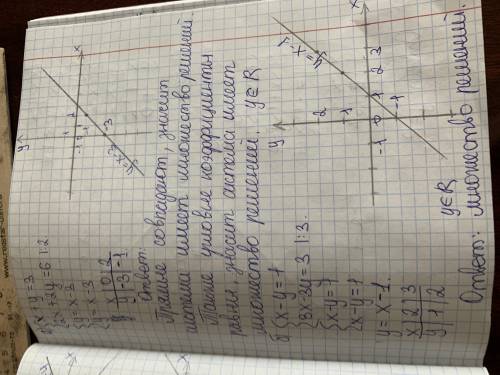 {x - y = 3
{2x - 2y = 6 |:2
{y = x - 3
{y = x - 3
x | 0 | 2
y | -3 | -1
y
x
y=x-3
Ответ:
Прямые совпадают, значит
система имеет множество решений
Также угловые коэффициенты
равны, значит система имеет
множество решений. y∈R
б) {x - y = 1
{3x - 3y = 3 |:3.
{x - y = 1
{x - y = 1
y = x - 1.
x | 2 | 3
y | 1 | 2
y
x
y=x-1
-1 0 1 2 3
y∈R
Ответ: множество решений.